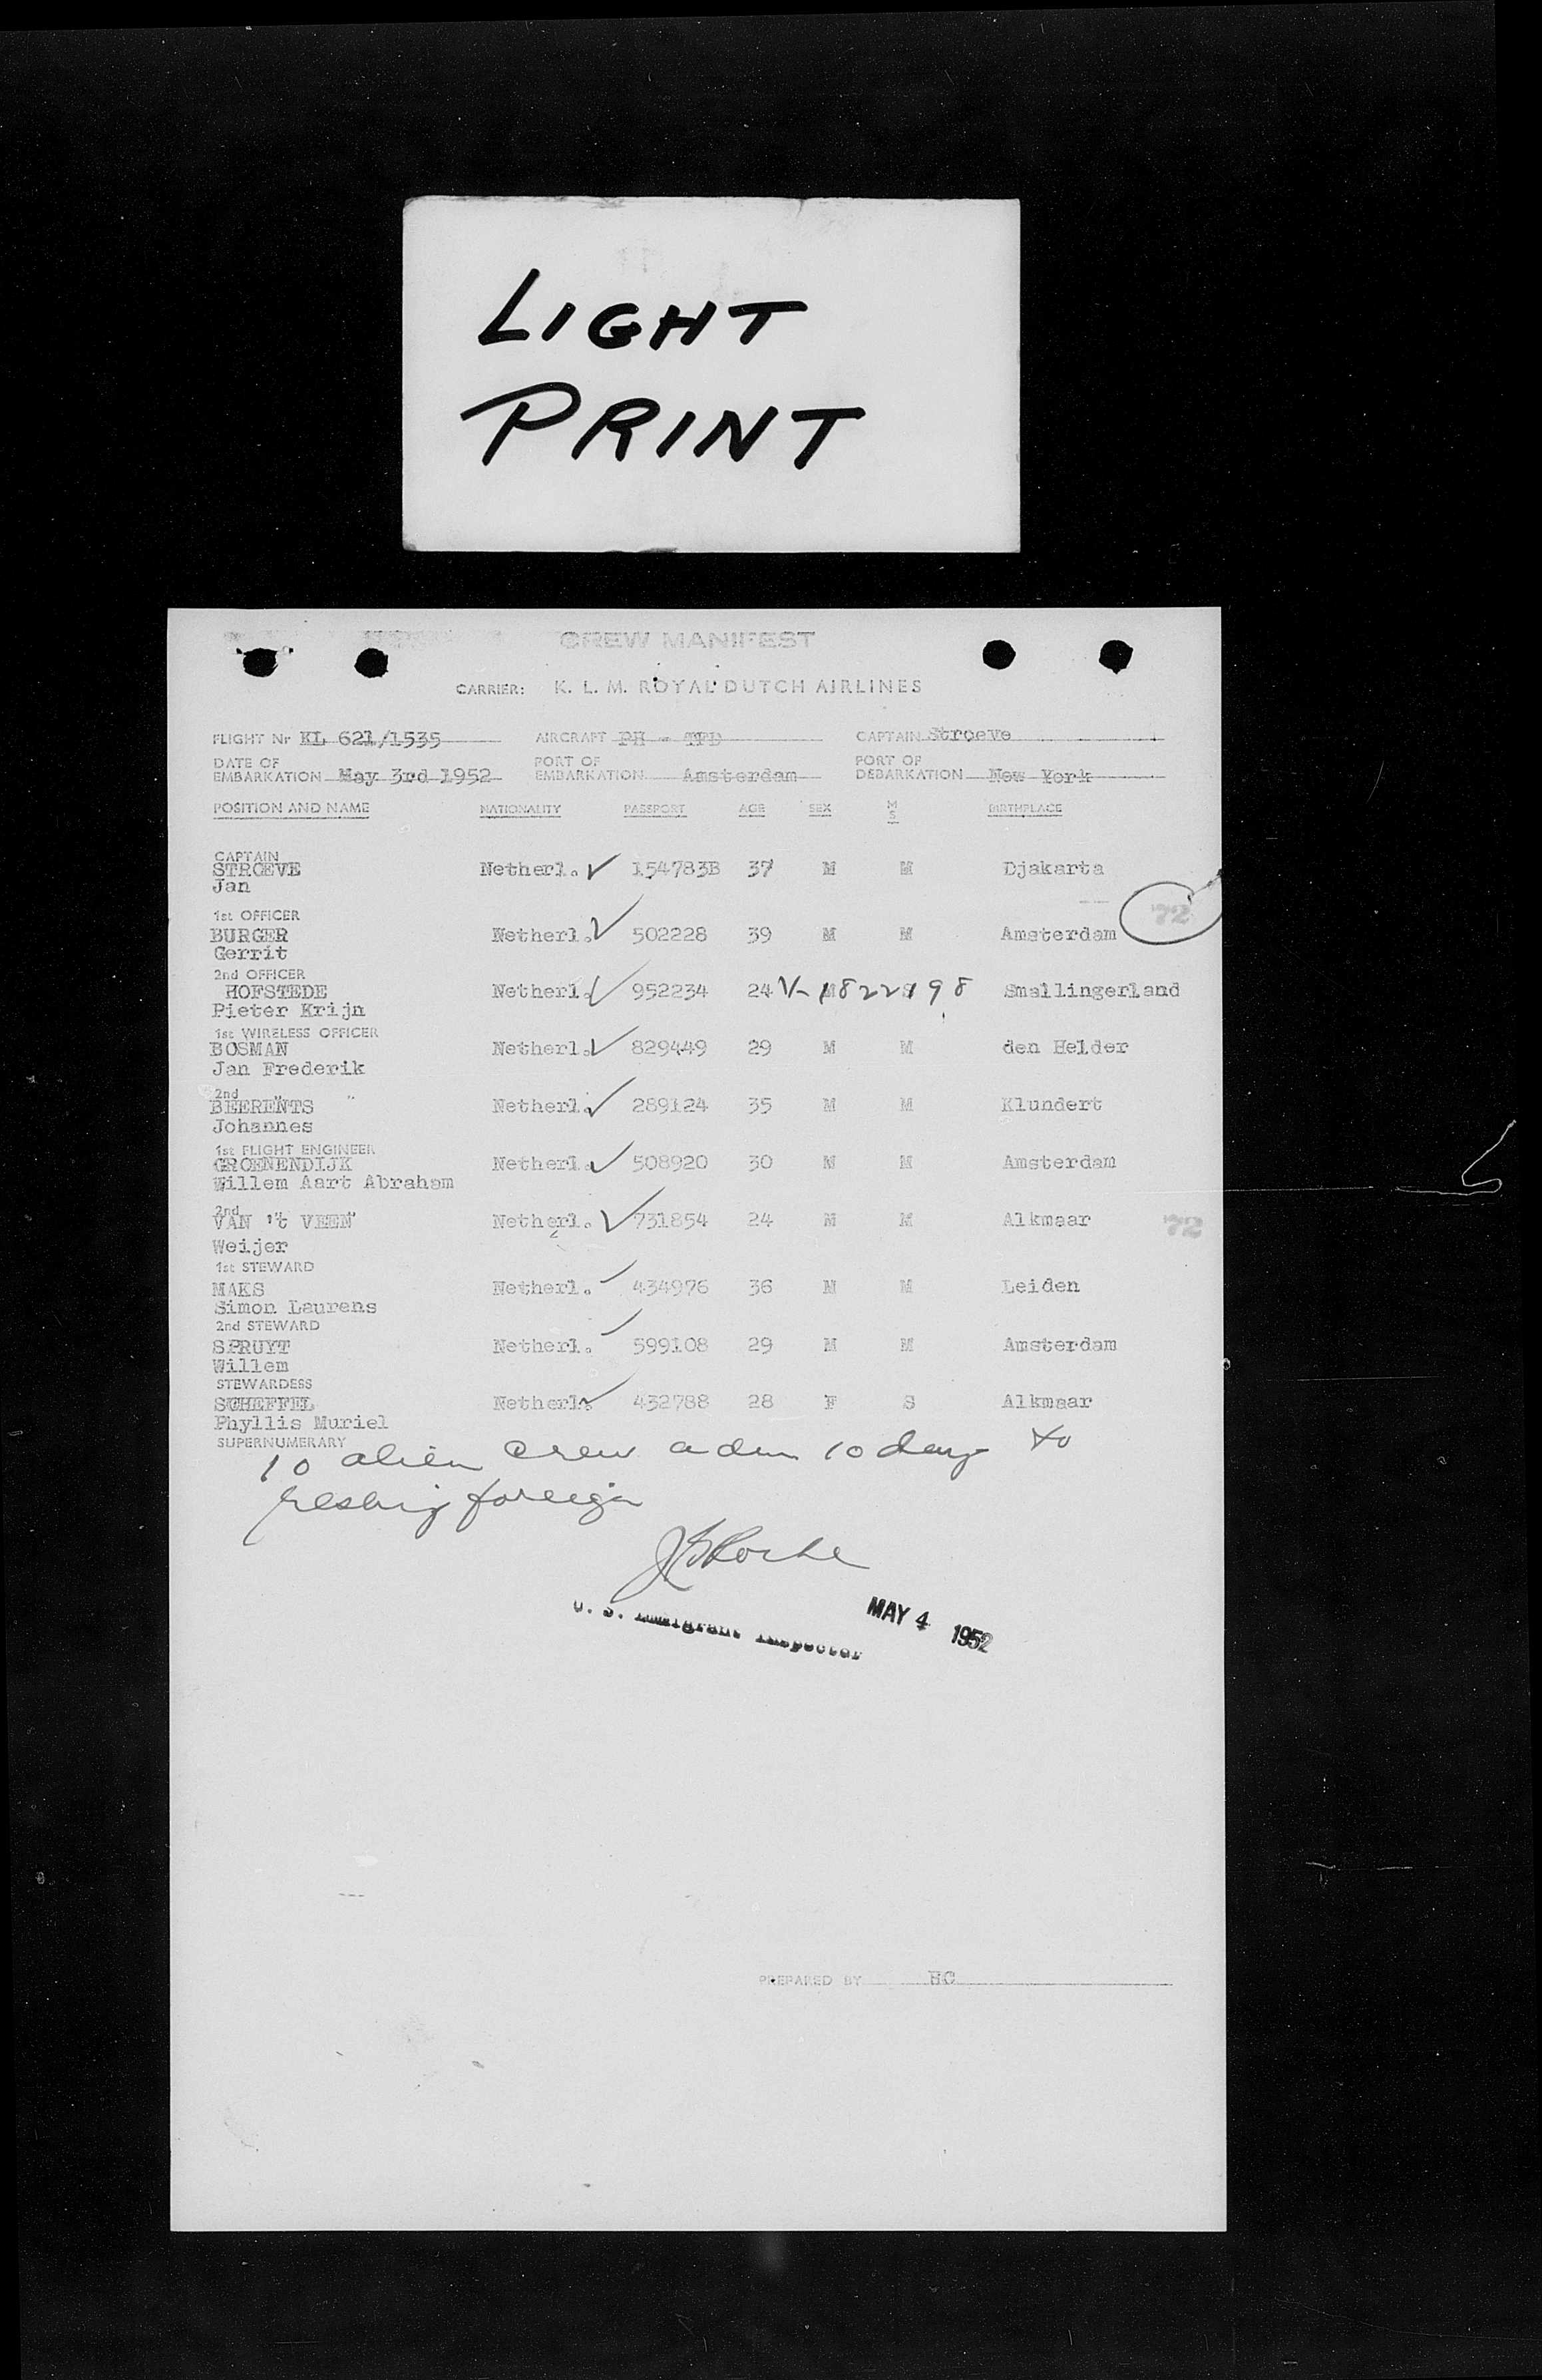 LIGHT
PRINT
CREW MANIFEST
CARRIER: K. L. M. ROYAL DUTCH AIRLINES
FLIGHT Nr KL 621/1535 AIRCRAFT PH - TFD CAPTAIN Stroeve
DATE OF EMBARKATION May 3rd 1952 PORT OF EMBARKATION Amsterdam PORT OF DEBARKATION New York
POSITION AND NAME NATIONALITY PASSPORT AGE SEX M S BIRTHPLACE
CAPTAIN
STROEVE Netherl. ✓ 154783B 37 M M Djakarta
Jan
72
1st OFFICER
BURGER Netherl. ✓ 502228 39 M M Amsterdam
Gerrit
2nd OFFICER
HOFSTEDE Netherl. ✓ 952234 24 V-1822198 Smallingerland
Pieter Krijn
1st WIRELESS OFFICER
BOSMAN Netherl. ✓ 829449 29 M M den Helder
Jan Frederik
2nd " "
BEERENTS Netherl. ✓ 289124 35 M M Klundert
Johannes
1st FLIGHT ENGINEER
GROENENDIJK Netherl. ✓ 508920 30 M M Amsterdam
Willem Aart Abraham
2nd " "
VAN 't VEEN Netherl. ✓ 731854 24 M M Alkmaar 72
Weijer
1st STEWARD
MAKS Netherl. 434976 36 M M Leiden
Simon Laurens
2nd STEWARD
SPRUYT Netherl. 599108 29 M M Amsterdam
Willem
STEWARDESS
SCHEFFEL Netherl. ✓ 432788 28 F S Alkmaar
Phyllis Muriel
SUPERNUMERARY
10 alien crew adm 10 days to
reship foreign
U. S. Immigrant Inspector MAY 4 1952
PREPARED BY HC